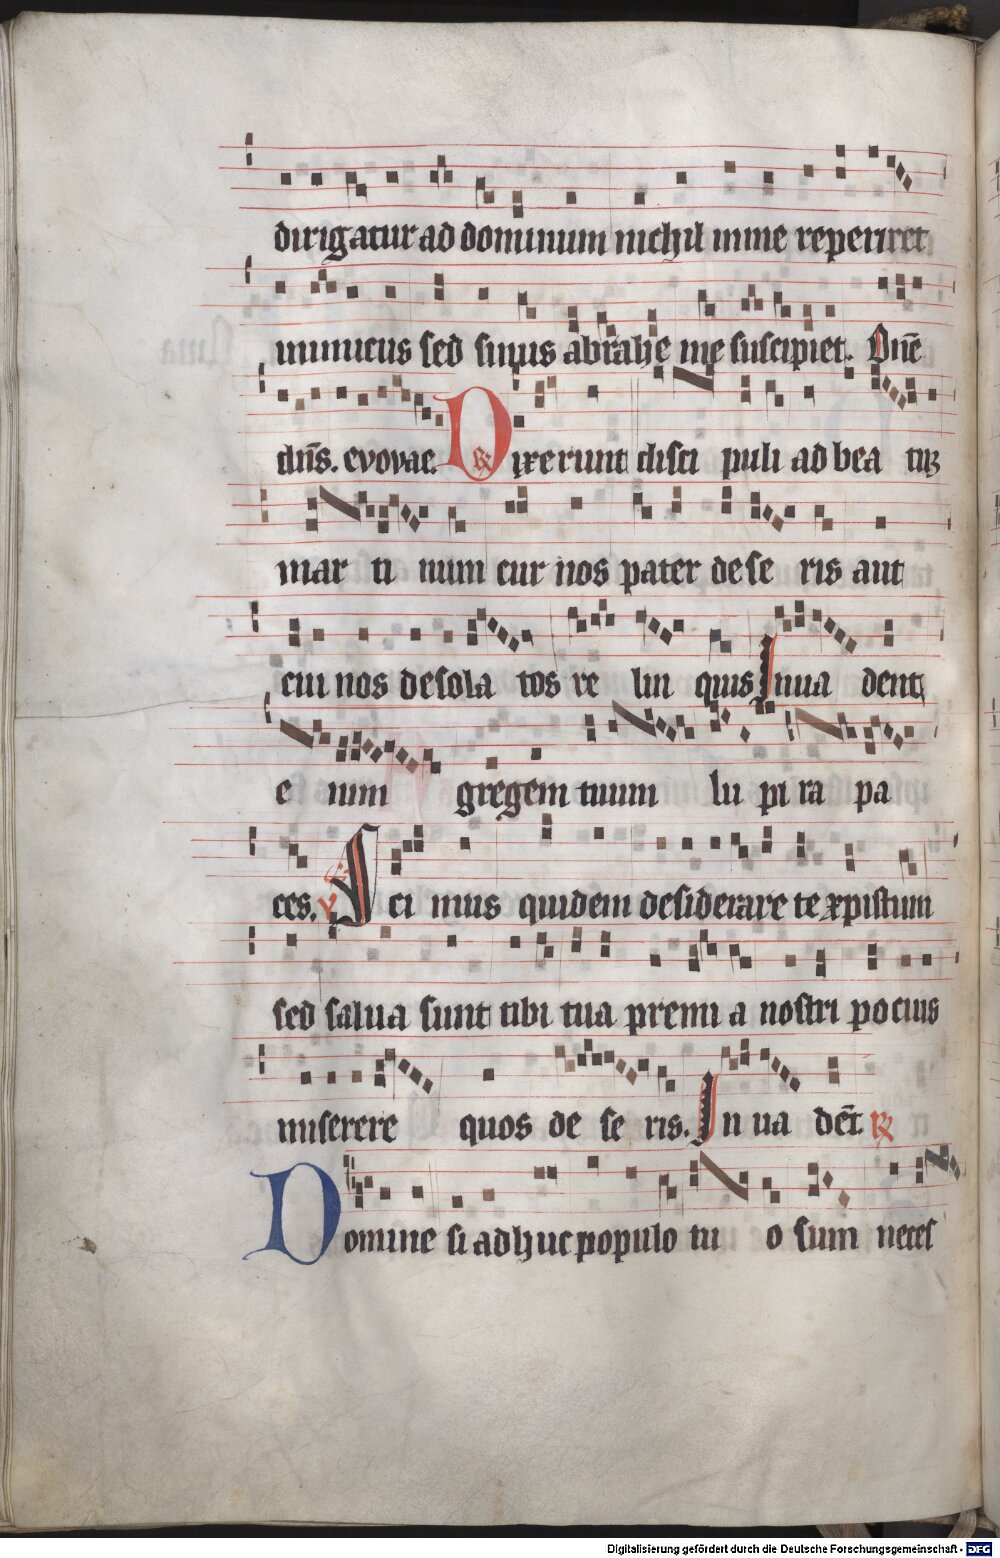 dirigatur ad dominum nichil in me reperiret
inimicus sed sinus abrahe me suscipiet. Dn̄e
dn̄s. evovae. R Dixerunt discipuli ad beatū
martinum cur nos pater deseris aut
cui nos desolatos relinquis Inuadent
enim gregem tuum lupi rapa
ces. V Scimus quidem desiderare te xpistum
sed salua sunt tibi tua premia nostri pocius
miserere quos deseris. Inuadēt R
Domine si adhuc populo tuo sum neces
Digitalisierung gefördert durch die Deutsche Forschungsgemeinschaft - DFG